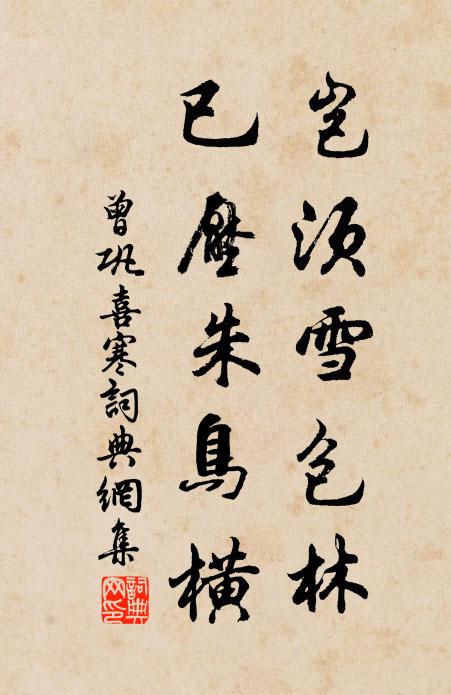 岂须雪包林
已压朱鸟横
曾巩喜寒詞典網集
詞典网印